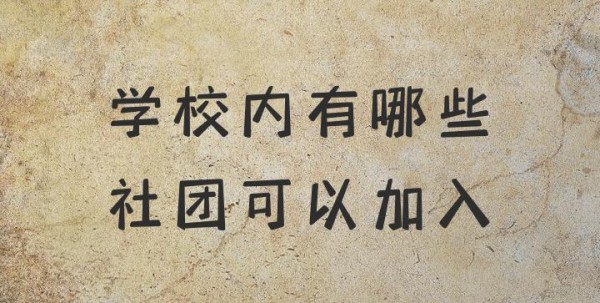 学校内有哪些
社团可以加入